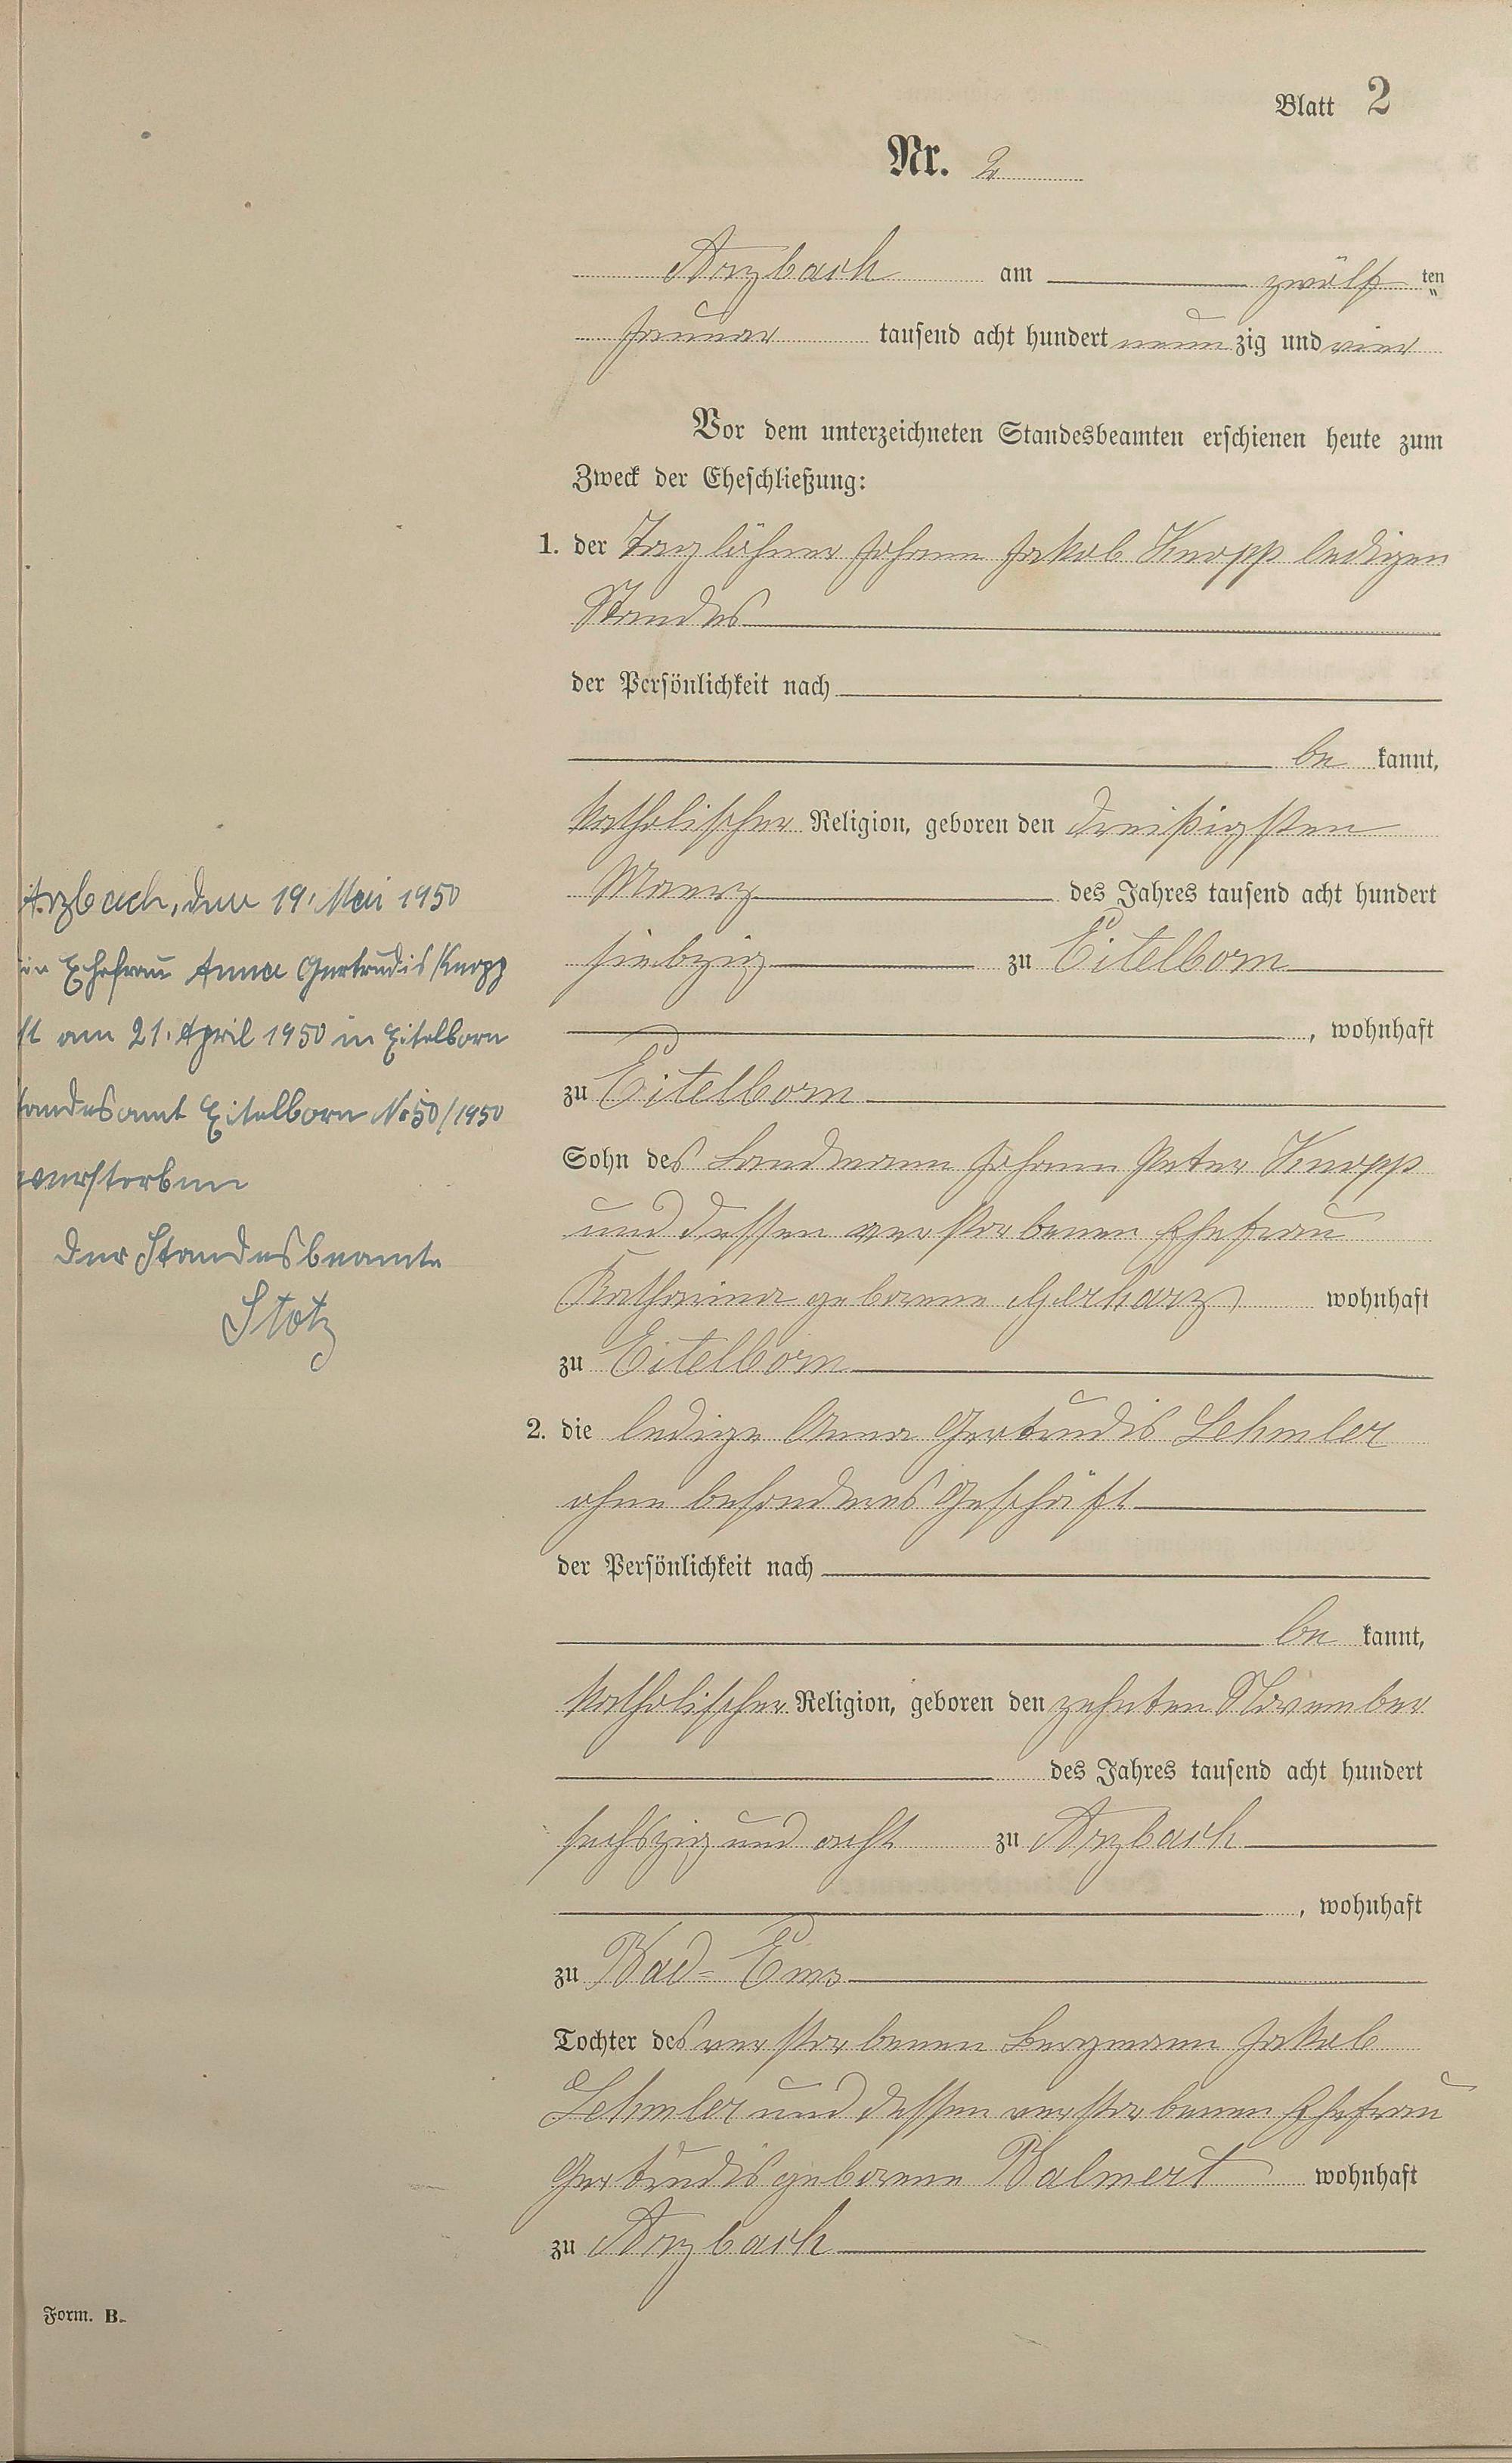 Blatt 2
Nr. 2
Arzbach am zwölf ten
Januar tausend acht hundert neun zig und vier
Vor dem unterzeichneten Standesbeamten erschienen heute zum
Zweck der Eheschließung:
1. der Taglöhner Johann Jakob Knopp ledigen
Standes
der Persönlichkeit nach
be kannt,
katholischer Religion, geboren den dreißigsten
Maerz des Jahres tausend acht hundert
siebzig zu Eitelborn
, wohnhaft
zu Eitelborn
Sohn des Landmann Johann Peter Knopp
und dessen verstorbenen Ehefrau
Katharina geborene Gerharz wohnhaft
zu Eitelborn
2. die ledige Anna Gertrudis Lehmler
ohne besonderes Geschäft
der Persönlichkeit nach
be kannt,
katholischer Religion, geboren den zehnten November
des Jahres tausend acht hundert
sechszig und acht zu Arzbach
, wohnhaft
zu Bad-Ems
Tochter des verstorbenen Bergmann Jakob
Lehmler und dessen verstorbenen Ehefrau
Gertrudis geborene Balmert wohnhaft
zu Arzbach
Arzbach, den 19. Mai 1950
in Ehefrau Anna Gertrudis Knopp
st am 21. April 1950 in Eitelborn
tandesamt Eitelborn No 50/1950
verstorben
Der Standesbeamte
Stotz
Form. B.